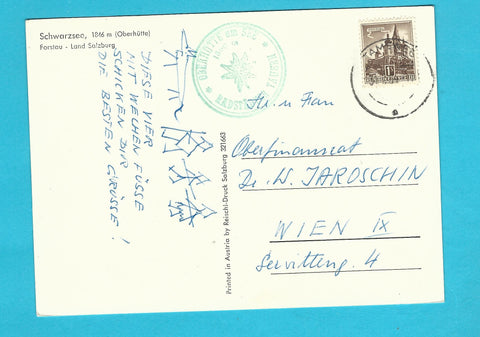 Schwarzsee, 1846 m (Oberhütte)
Forstau - Land Salzburg
DIESE VIER
MIT WEHEN FÜSSE
SCHICKEN DIR
DIE BESTEN GRÜSSE!
OBERHÜTTE am SEE
Printed in Austria by Reischl-Druck Salzburg 321663
Hr. u Frau
Oberfinanzrat
Dr. W. JAROSCHIN
WIEN IX
Servitteng. 4